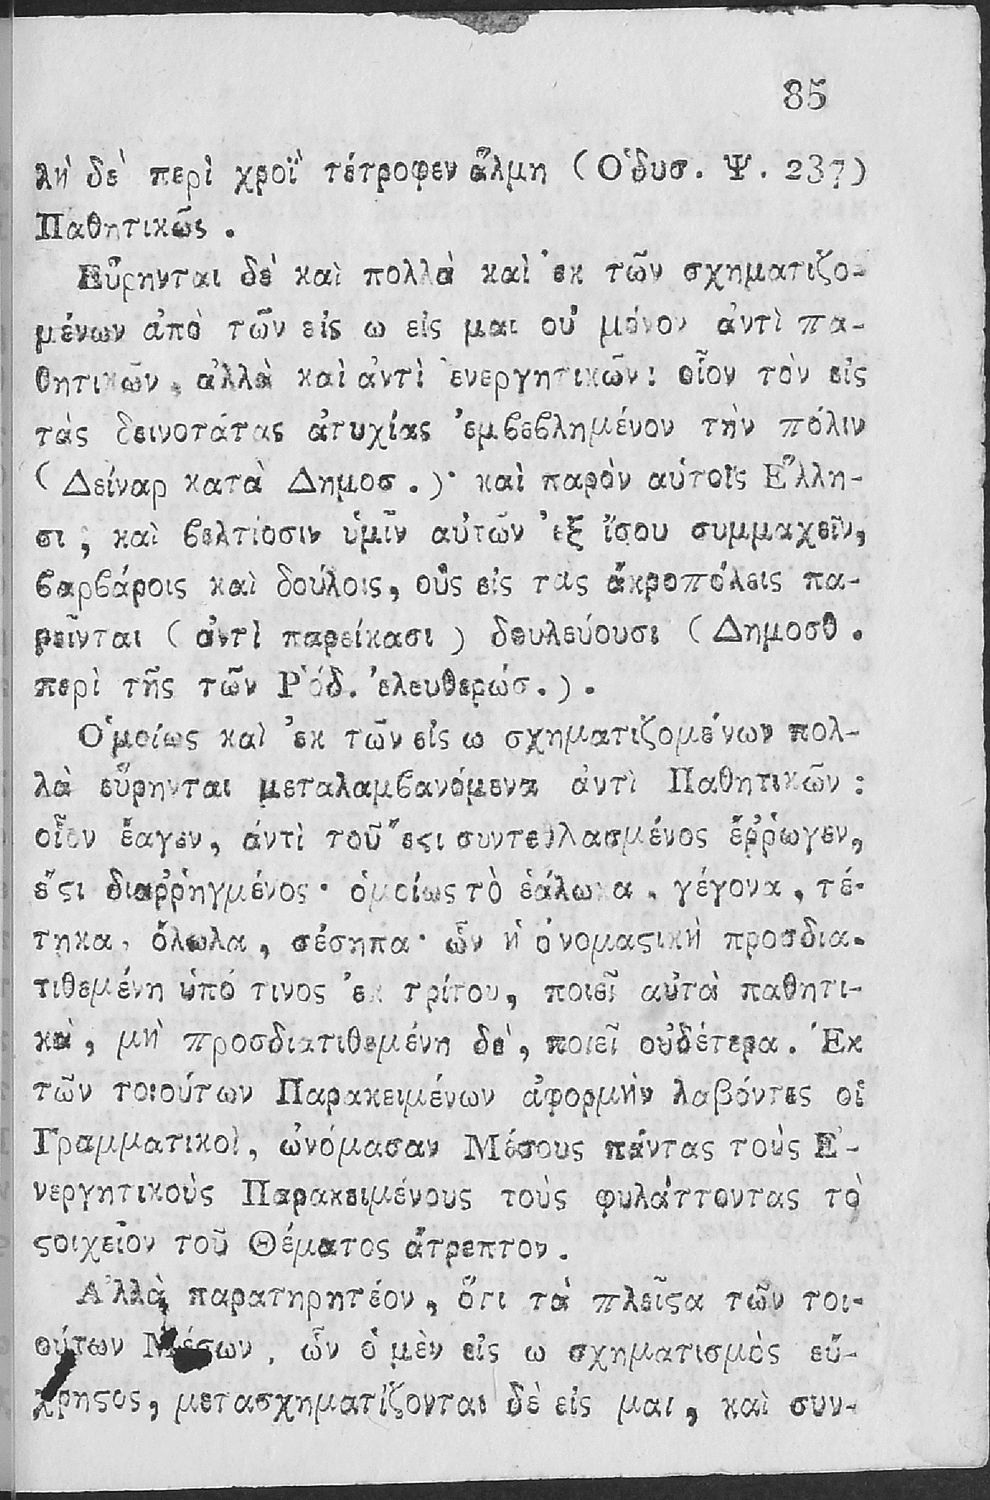 85
λὴ δὲ περὶ χροῒ τέτροφεν ἅλμη (Ὀδυσ. Ψ. 237)
Παθητικῶς.
Εὕρηνται δὲ καὶ πολλὰ καὶ ἐκ τῶν σχηματιζο-
μένων ἀπὸ τῶν εἰς ω εἰς μαι οὐ μόνον ἀντὶ πα-
θητικῶν, ἀλλὰ καὶ ἀντὶ ἐνεργητικῶν: οἷον τὸν εἰς
τὰς δεινοτάτας ἀτυχίας ἐμϐεϐλημένον τὴν πόλιν
(Δείναρ κατὰ Δημοσ.)· καὶ παρὸν αὐτοῖς Ἕλλη-
σι, καὶ ϐελτίοσιν ὑμῖν αὐτῶν ἐξ ἴσου συμμαχεῖν,
ϐαρϐάροις καὶ δούλοις, οὓς εἰς τὰς ἀκροπόλεις πα-
ρεῖνται (ἀντὶ παρείκασι) δουλεύουσι (Δημοσθ.
περὶ τῆς τῶν Ῥόδ. ἐλευθερώσ.).
Ὁμοίως καὶ ἐκ τῶν εἰς ω σχηματιζομένων πολ-
λὰ εὕρηνται μεταλαμϐανόμενα ἀντὶ Παθητικῶν:
οἷον ἔαγεν, ἀντὶ τοῦ ἔϛι συντεθλασμένος ἔῤῥωγεν,
ἔϛι διαῤῥηγμένος· ὁμοίως τὸ ἑάλωκα, γέγονα, τέ-
τηκα, ὄλωλα, σέσηπα· ὧν ἡ ὀνομαϛικὴ προσδια-
τιθεμένη ὑπό τινος ἐκ τρίτου, ποιεῖ αὐτὰ παθητι-
κὰ, μὴ προσδιατιθεμένη δὲ, ποιεῖ οὐδέτερα. Ἐκ
τῶν τοιούτων Παρακειμένων ἀφορμὴν λαβόντες οἱ
Γραμματικοὶ, ὠνόμασαν Μέσους πάντας τοὺς Ἐ-
νεργητικοὺς Παρακειμένους τοὺς φυλάττοντας τὸ
ϛοιχεῖον τοῦ Θέματος ἄτρεπτον.
Ἀλλὰ παρατηρητέον, ὅτι τὰ πλεῖϛα τῶν τοι-
ούτων Μέσων, ὧν ὁ μὲν εἰς ω σχηματισμὸς εὔ-
χρηϛος, μετασχηματίζονται δὲ εἰς μαι, καὶ συν-